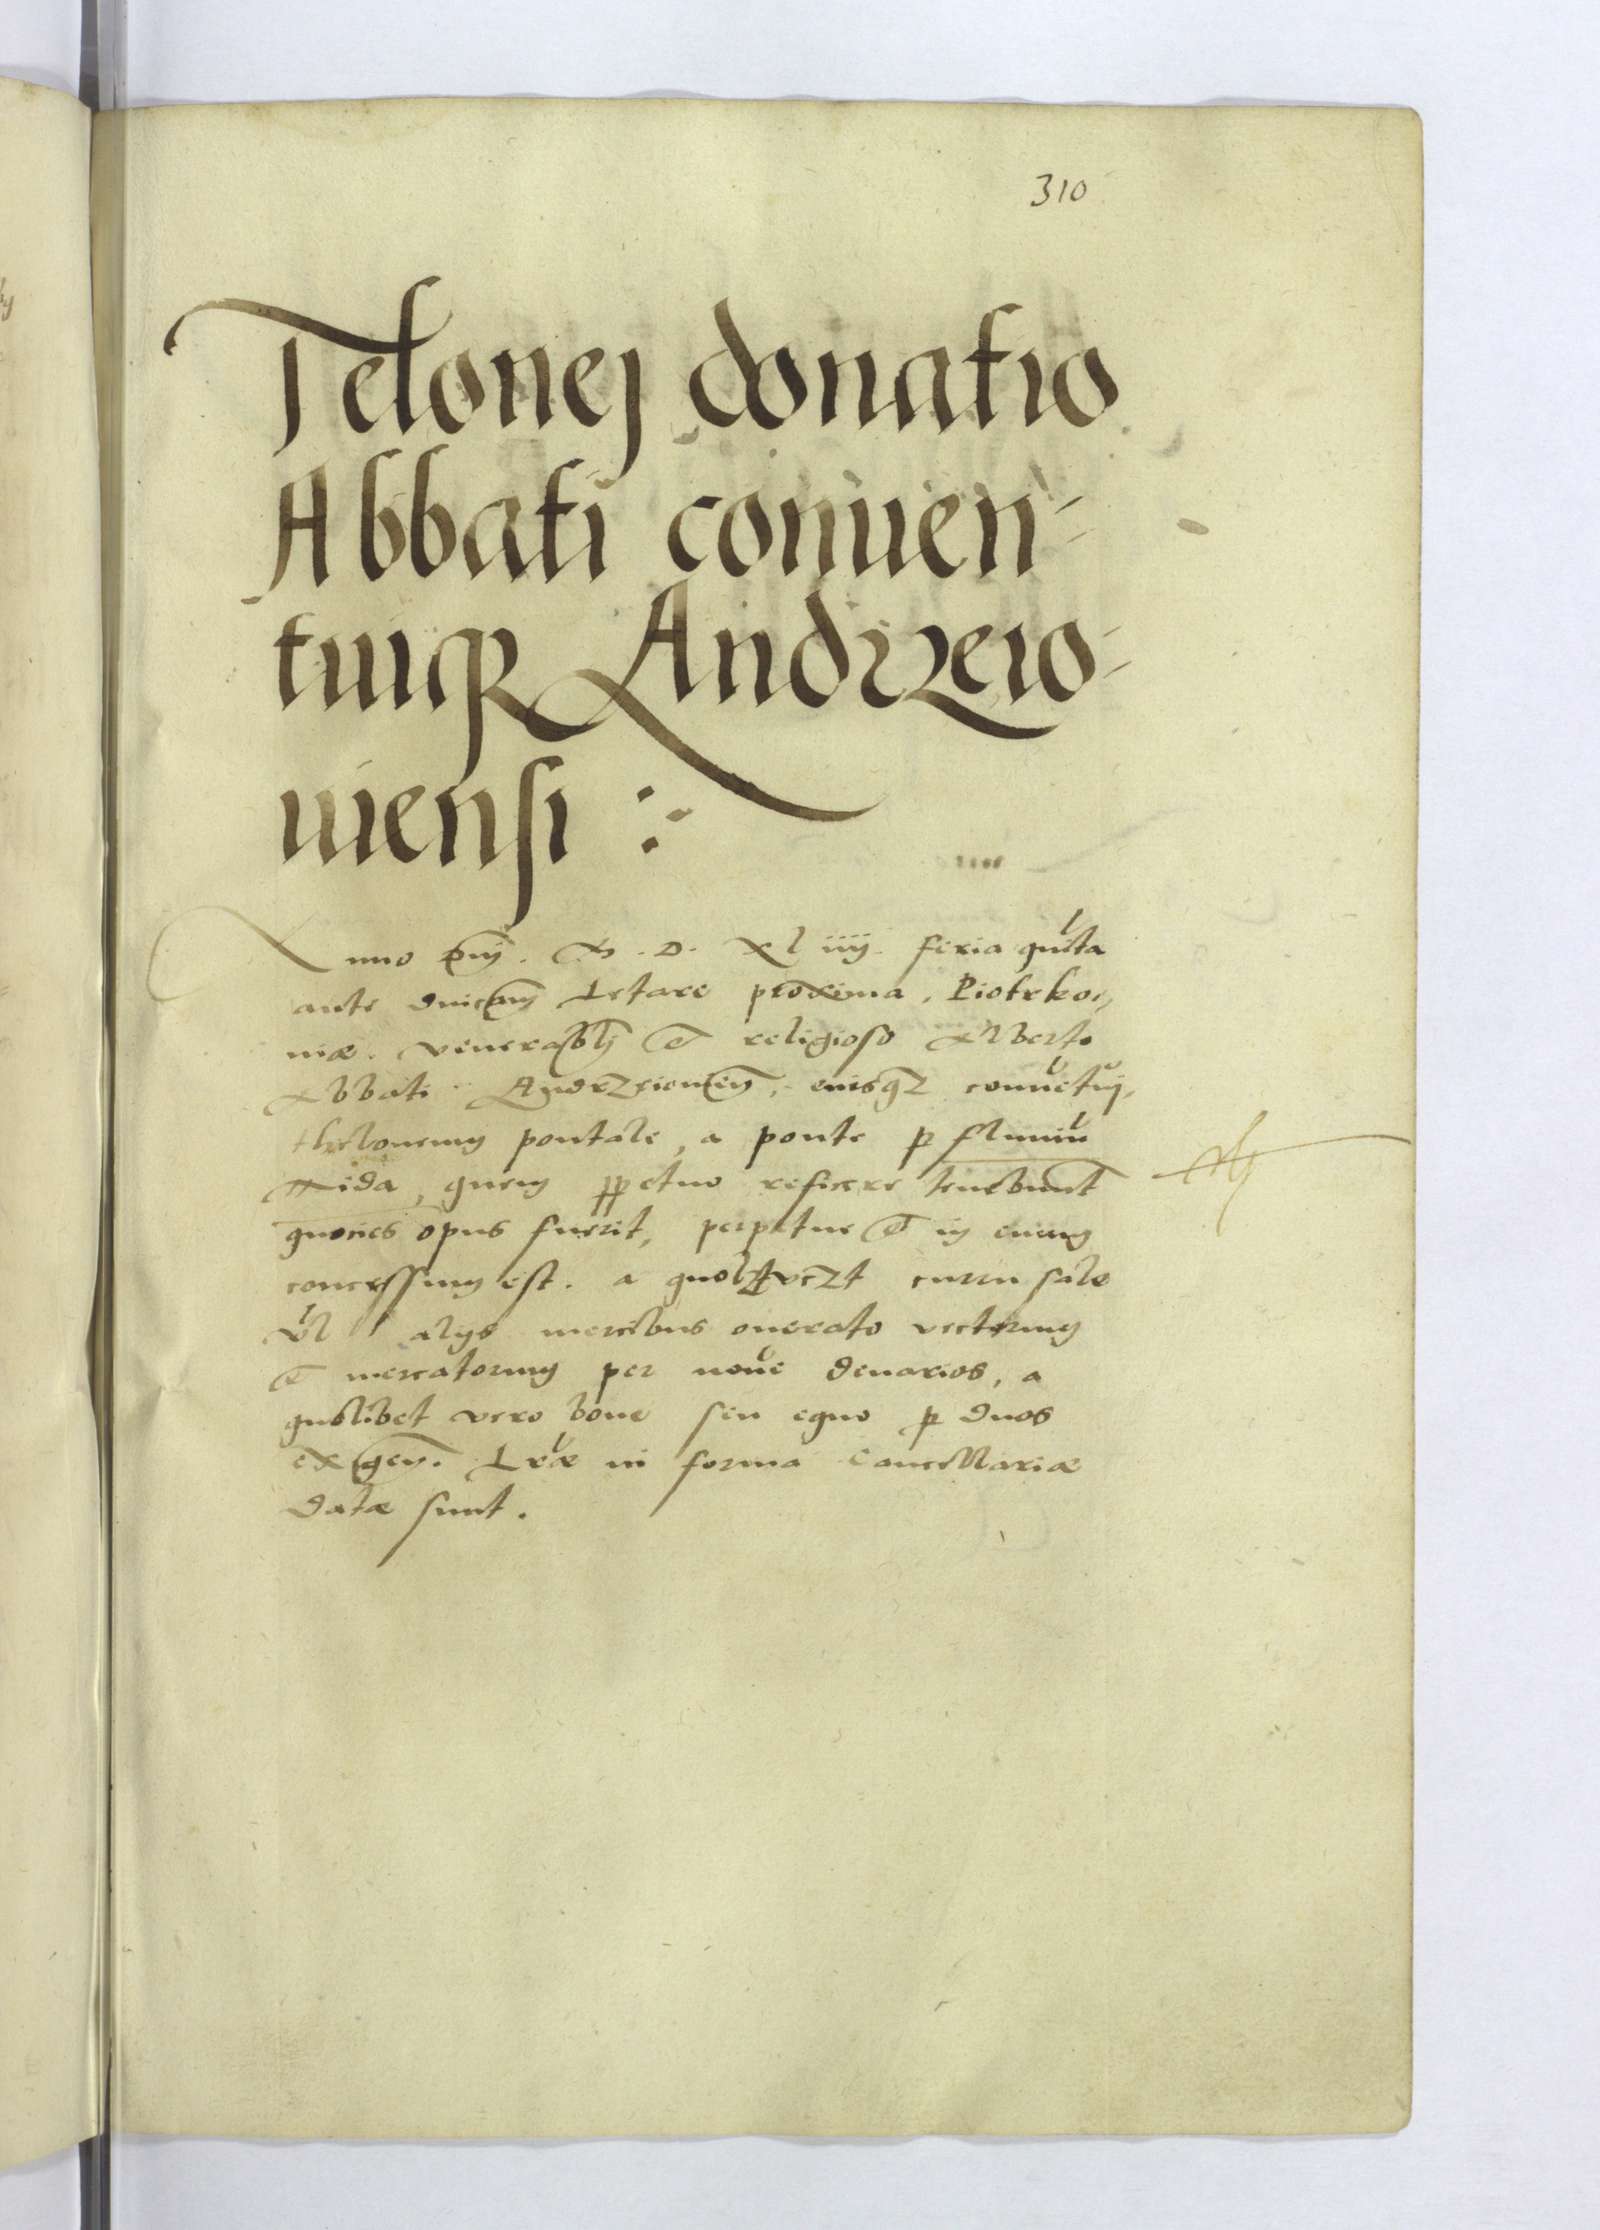 310
Telonej donatio
Abbati conuen-
tuiq Andrzeio-
uiensi :
Anno Dnj. M. D. XL iiij. feria quīta
ante dnicam Letare proxima, Piotrko,,
uiæ. venerabli et religioso Alberto
Abbati Andrzeiouien, eiusqz conuētui,
theloneum pontale, a ponte p fluuiū
Nida, quem ppetuo reficere tenebunt
quocies opus fuerit, perpetue et in euum
concessum est. a quolibet curru sale
vl alijs mercibus onerato vectorum
et mercatorum per nouē denarios, a
quolibet vero boue seu equo p duos
exigen. Lræ in forma Cancellariæ
datæ sunt.